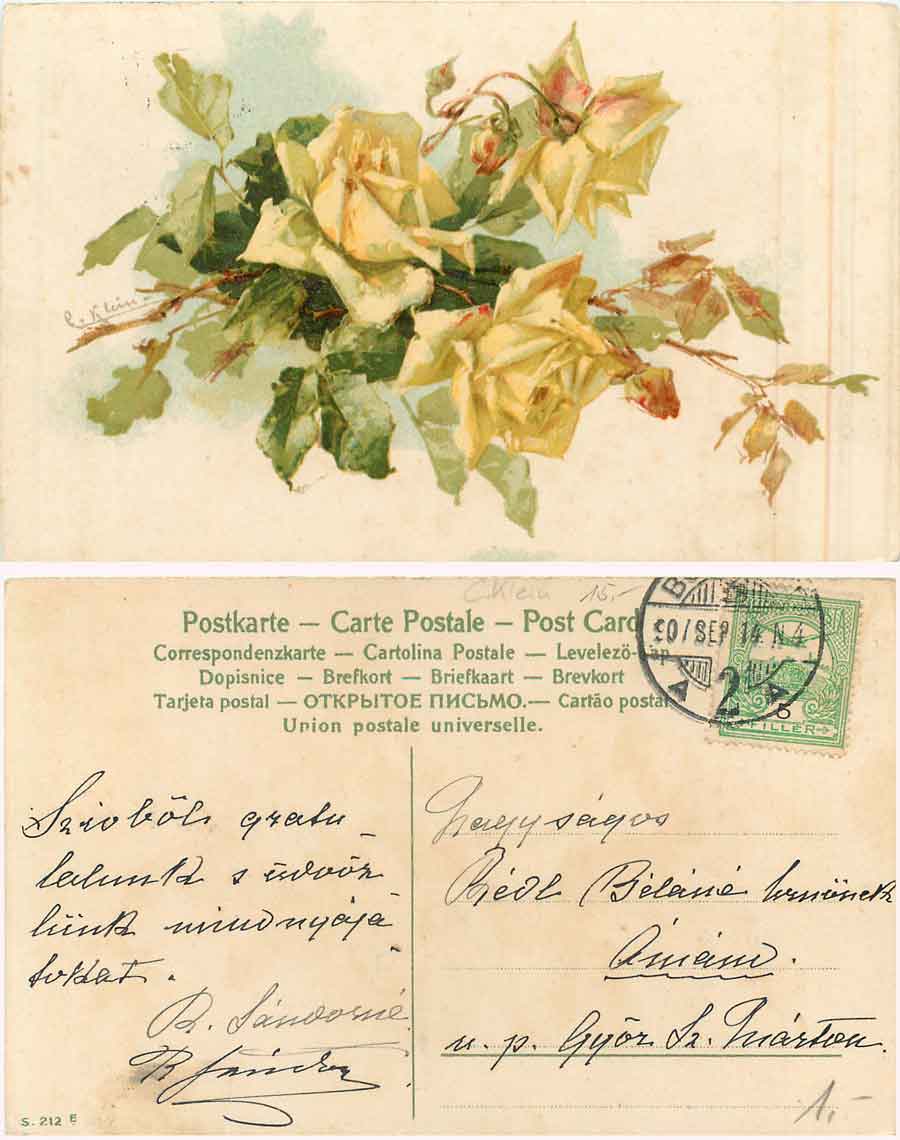 C. Klein
C. Klein 15.-
Postkarte — Carte Postale — Post Card
Correspondenzkarte — Cartolina Postale — Levelező-Lap
Dopisnice — Brefkort — Briefkaart — Brevkort
Tarjeta postal — ОТКРЫТОЕ ПИСЬМО.— Cartão postal
Union postale universelle.
B
SEP 14 N 4
A 2 A
5
FILLÉR
Szivből gratu
lalunk s üdvöz
lünk mindnyájá
tokat.
R. Sándorné
R Sándor
Nagyságos
Rédl Béláné urnőnek
Ámánd.
u. p. Győr Sz. Márton.
S. 212 E
1.-